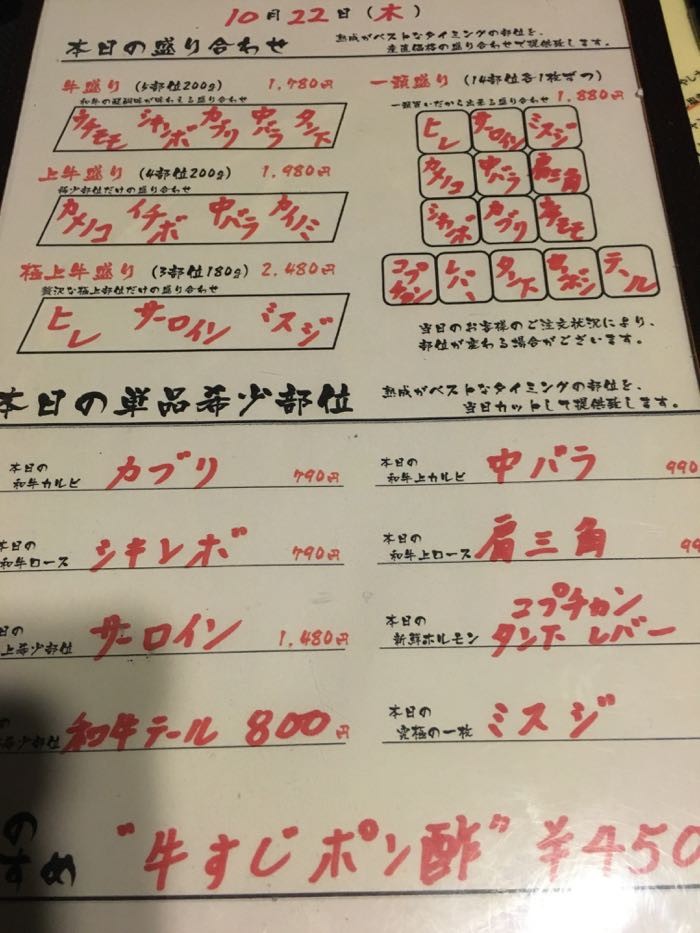 10月22日(木)
本日の盛り合わせ
熟成がベストなタイミングの部位を、
産直価格の盛り合わせで提供致します。
牛盛り (5部位200g) 1,780円
和牛の醍醐味が味わえる盛り合わせ
ウチモモ シキンボ カブリ 中バラ タン下
上牛盛り (4部位200g) 1,980円
希少部位だけの盛り合わせ
カメノコ イチボ 中バラ カイノミ
極上牛盛り (3部位180g) 2,480円
贅沢な極上部位だけの盛り合わせ
ヒレ サーロイン ミスジ
一頭盛り (14部位各1枚ずつ)
一頭買いだから出来る盛り合わせ 1,880円
ヒレ サーロイン ミスジ
カメノコ 中バラ 肩三角
シキンボ カブリ
コブチャン レバー タン下 テール
当日のお客様のご注文状況により、
部位が変わる場合がございます。
本日の単品希少部位
熟成がベストなタイミングの部位を、
当日カットして提供致します。
本日の
和牛カルビ カブリ 790円
本日の
和牛上カルビ 中バラ 990
本日の
和牛ロース シキンボ 790円
本日の
和牛上ロース 肩三角 99
の日の
上希少部位 サーロイン 1,480円
本日の
新鮮ホルモン コプチャン
タン下 レバー
の
希少部位 和牛テール 800円
本日の
究極の一枚 ミスジ
のすめ "牛すじポン酢" ¥450